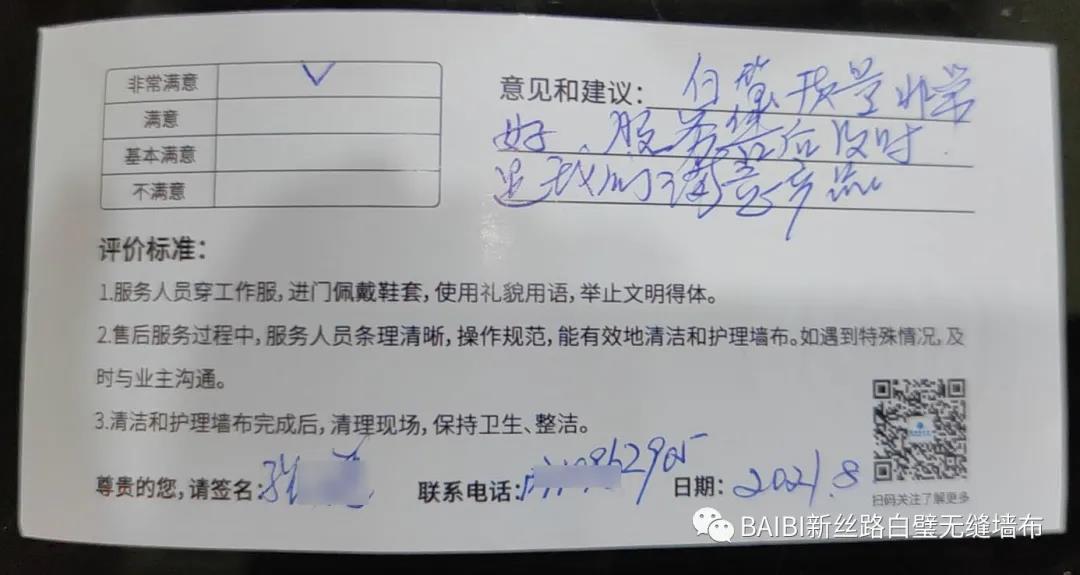 非常满意 ✓
满意
基本满意
不满意
意见和建议：白璧质量非常
好、服务售后及时
是我们满意产品
评价标准：
1.服务人员穿工作服，进门佩戴鞋套，使用礼貌用语，举止文明得体。
2.售后服务过程中，服务人员条理清晰，操作规范，能有效地清洁和护理墙布。如遇到特殊情况，及
时与业主沟通。
3.清洁和护理墙布完成后，清理现场，保持卫生、整洁。
尊贵的您，请签名：张 联系电话：862905 日期：2021.8
扫码关注了解更多
BAIBI新丝路白璧无缝墙布